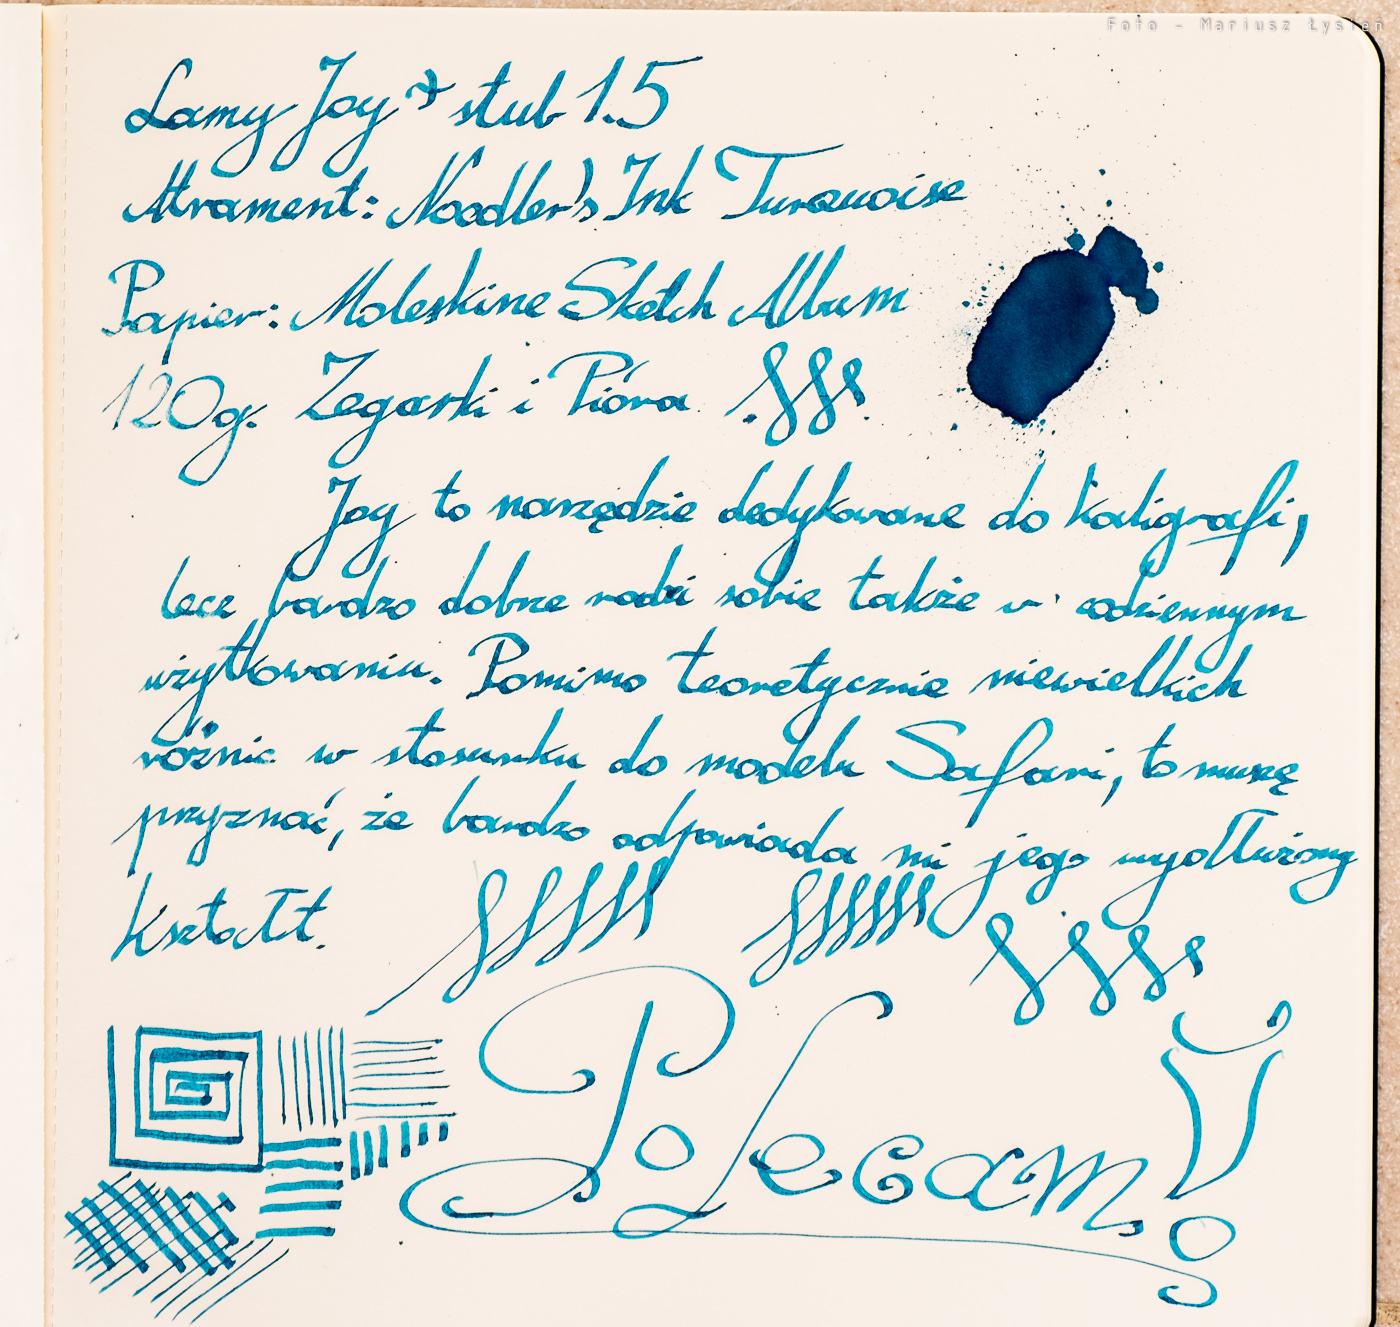 Foto - Mariusz Łysień
Lamy Joy * stub 1.5
Atrament: Noodler's Ink Turquoise
Papier: Moleskine Sketch Album
120g. Zegarki i Pióra
Joy to narzędzie dedykowane do kaligrafi,
lecz bardzo dobrze radzi sobie także w codziennym
użytkowaniu. Pomimo teoretycznie niewielkich
różnic w stosunku do modelu Safari, to muszę
przyznać, że bardzo odpowiada mi jego wydłużony
kształt.
Polecam!